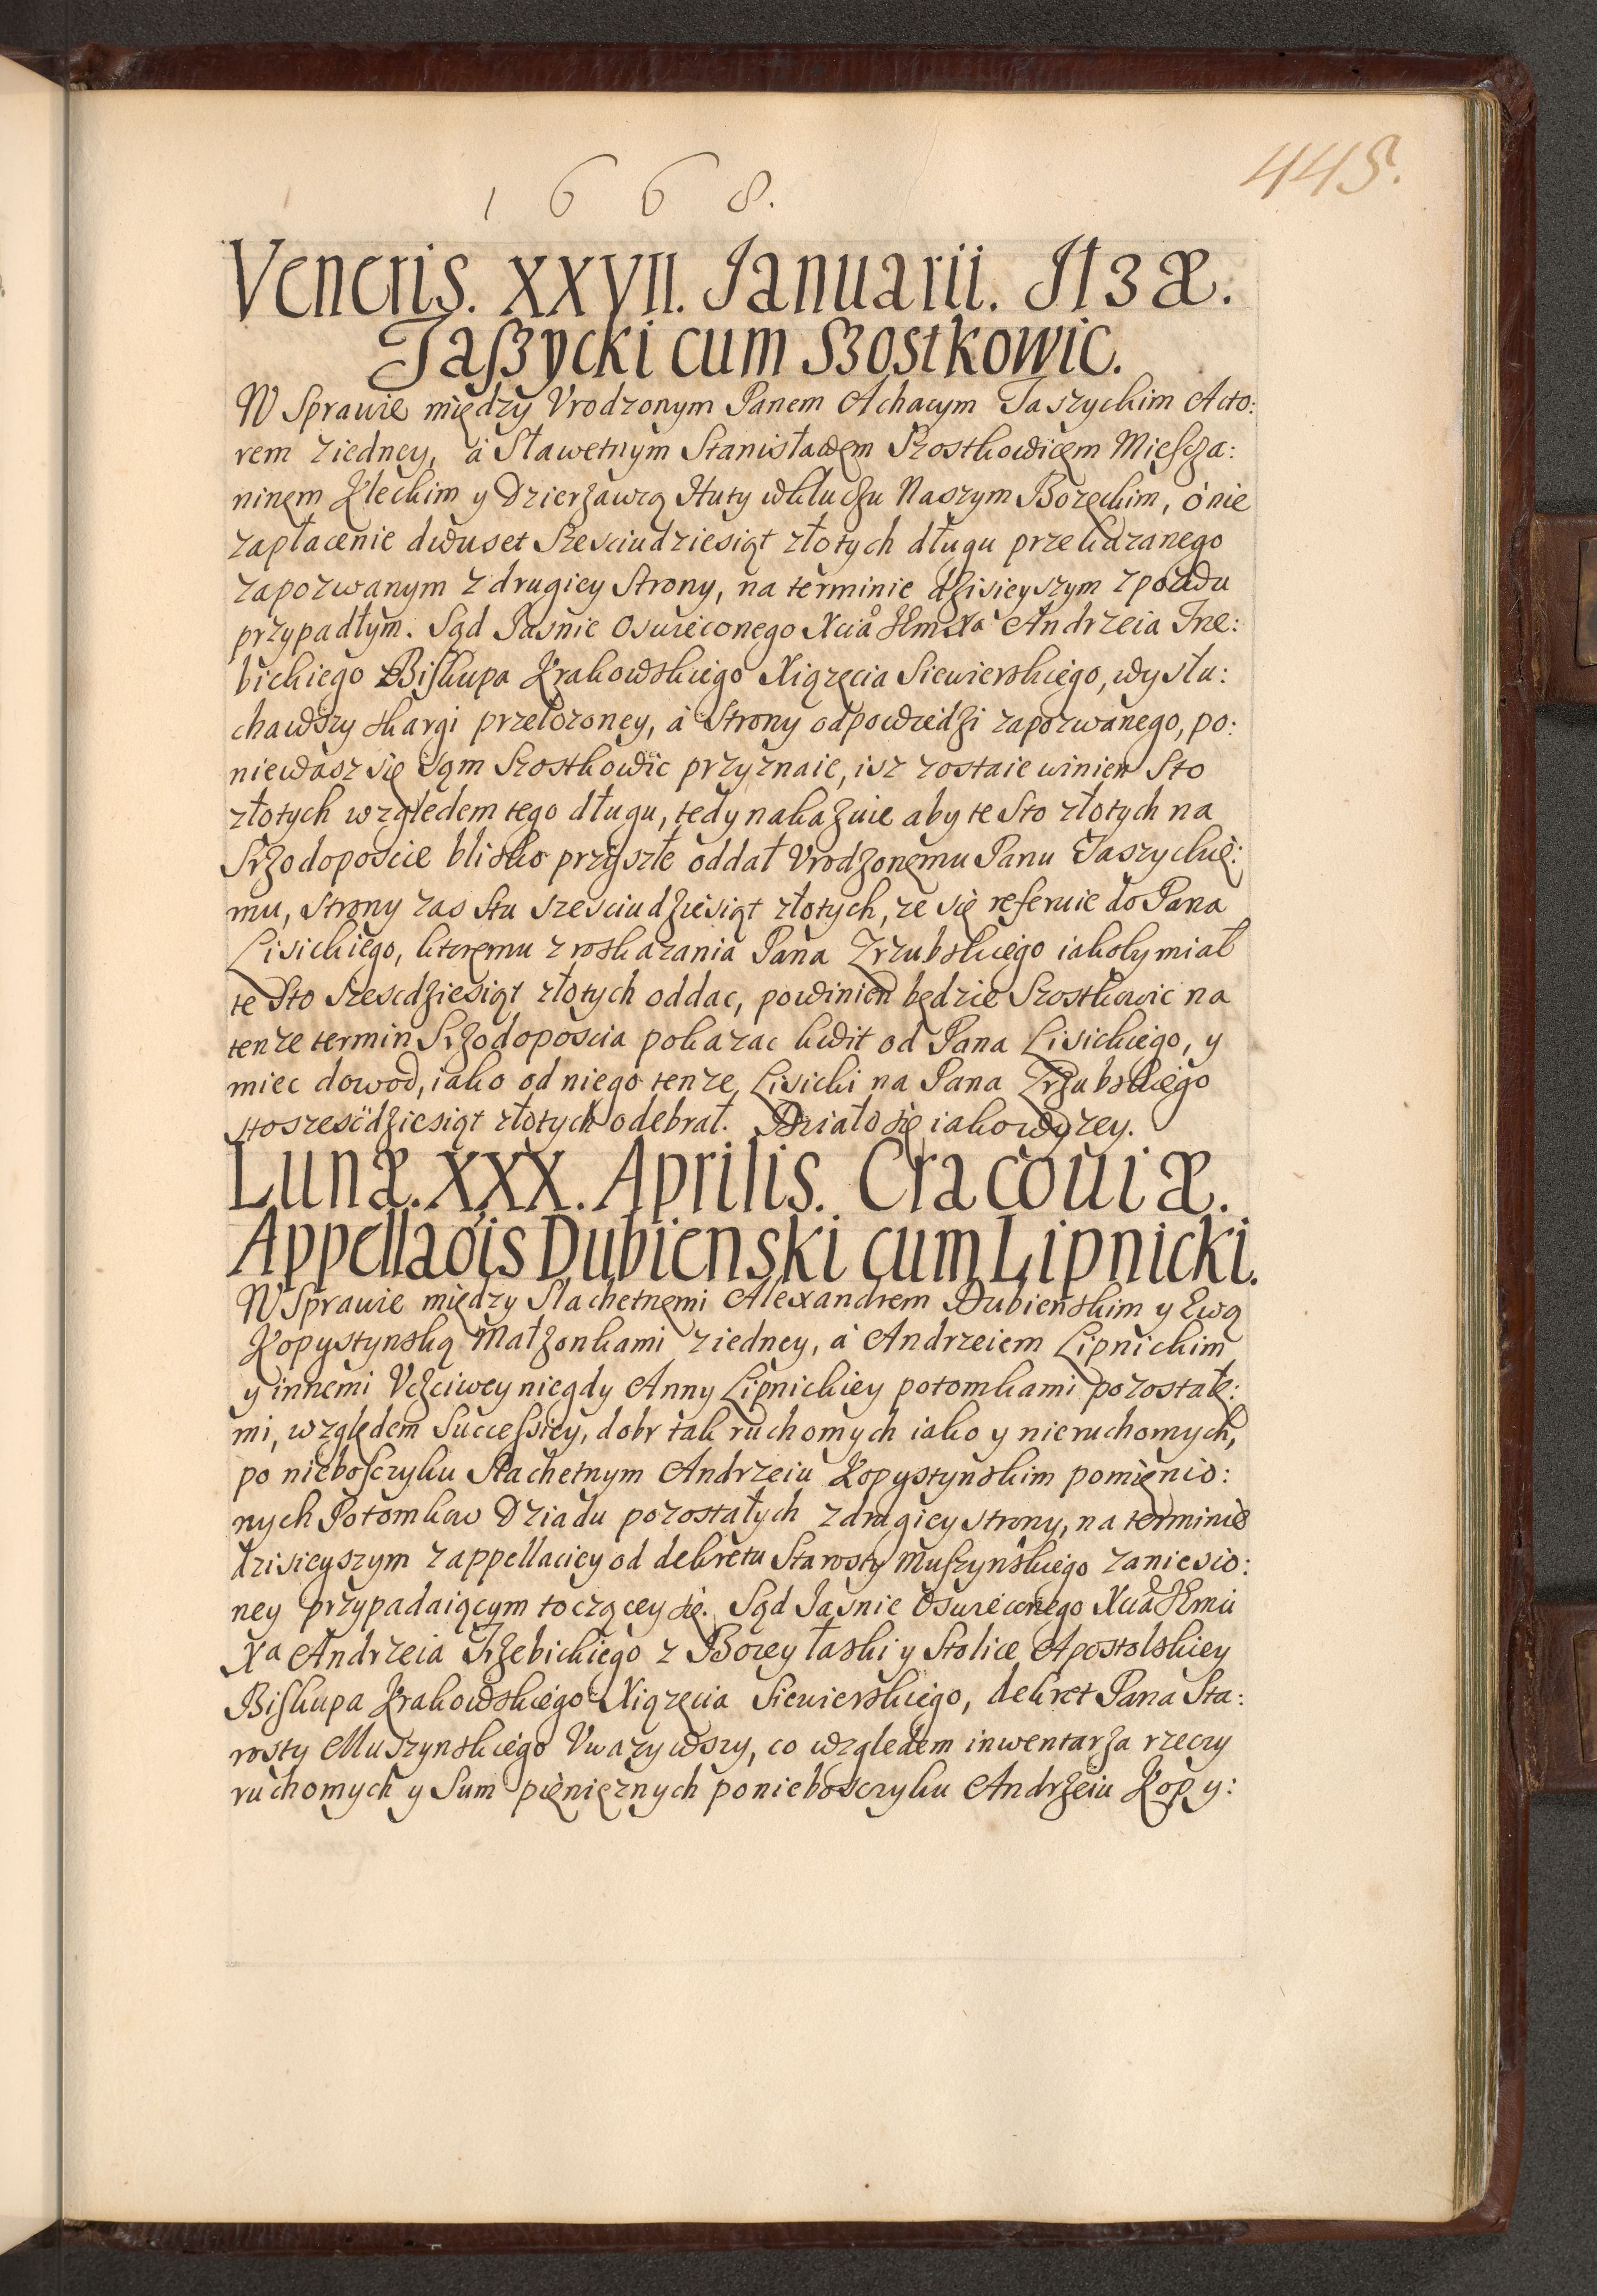 445.
1 6 6 8.
Veneris. XXVII. Januarii. Jłżæ.
Jaſzycki cum Szostkowic.
W Sprawie między Vrodzonym Panem Achacym Jaszyckim Acto:
rem z iedney, à Sławetnym Stanisławem Szostkowicem Mieſcza:
ninem Kieckim y Dzierżawcą Huty w kluczu Naszym Borzęckim, ó nie
zapłacenie dwuset Szesciudziesiąt złotych długu przekazanego
zapozwanym z drugiey Strony, na terminie dzisieyszym z pozwu
przypadłym. Sąd Jasnie Oswieconego Xcia JEmXa Andrzeia Trze:
bickiego Biſkupa Krakowskiego Xiązęcia Siewierskiego, wysłu:
chawszy skargi przełozoney, à Strony odpowiedzi zapozwanego, po:
niewasz się sąm Szostkowic przyznaie, isz zostaie winien Sto
złotych względem tego długu, tedy nakazuie aby te Sto złotych na
Srzodoposcie blisko przyszłe oddał Vrodzonemu Panu Jaszyckie:
mu, strony zas stu szesciudziesiąt złotych, ze się referuie do Pana
Lisickiego, ktoremu z roskazania Pana Zrzubskiego iakoby miał
te Sto Szescdziesiąt złotych oddac, powinien będzie Szostkowic na
tenze termin Srzodoposcia pokazac kwit od Pana Lisickiego, y
miec dowod, iako od niego tenze Lisicki na Pana Zrzubskiego
stoszescdziesiąt złotych odebrał. Działo się iako wyzey.
Lunæ. XXX. Aprilis. Cracoviæ.
Appellaōis Dubienski cum Lipnicki.
W Sprawie między Slachetnemi Alexandrem Dubieńskim y Ewą
Kopystynską Małżonkami z iedney, à Andrzeiem Lipnickim
y innemi Vczciwey niegdy Anny Lipnickiey potomkami pozostałe:
mi, względem Succeſsiey, dobr tak ruchomych iako y nieruchomych,
po nieboſczyku Slachetnym Andrzeiu Kopystynskim pomienio:
nych Potomkow Dziadu pozostałych z drugiey strony, na terminie
dzisieyszym z appellaciey od dekretu Starosty Muſzyńskiego zaniesio:
ney przypadaiącym toczącey się. Sąd Jasnie Oswieconego Xcia JEmci
Xa Andrzeia Trzebickiego z Bozey łaski y Stolice Apostolskiey
Biſkupa Krakowskiego Xiązęcia Siewierskiego, dekret Pana Sta:
rosty Muszynskiego Vwazywszy, co względem inwentarza rzeczy
ruchomych y Sum pienięznych po nieboszczyku Andrzeiu Kopy: